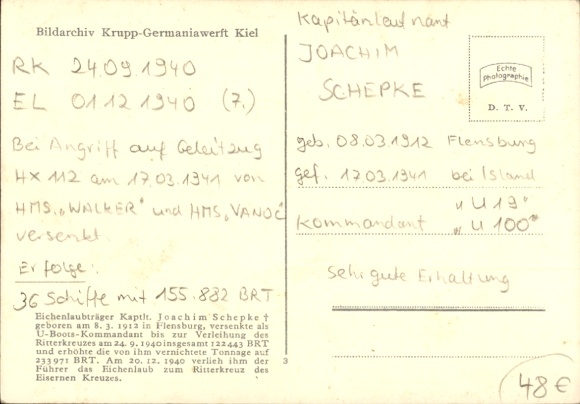 Bildarchiv Krupp-Germaniawerft Kiel
RK 24.09.1940
EL 01.12.1940 (7.)
Bei Angriff auf Geleitzug
HX 112 am 17.03.1941 von
HMS „WALKER" und HMS „VANOC"
versenkt.
Erfolge:
36 Schiffe mit 155.882 BRT
Eichenlaubträger Kaptlt. Joachim Schepke †
geboren am 8. 3. 1912 in Flensburg, versenkte als
U-Boots-Kommandant bis zur Verleihung des
Ritterkreuzes am 24. 9. 1940 insgesamt 122443 BRT
und erhöhte die von ihm vernichtete Tonnage auf
233971 BRT. Am 20. 12. 1940 verlieh ihm der
Führer das Eichenlaub zum Ritterkreuz des
Eisernen Kreuzes.
3
Kapitänleutnant
JOACHIM
SCHEPKE
Echte
Photographie
D. T. V.
geb. 08.03.1912 Flensburg
gef. 17.03.1941 bei Island
„U 19"
Kommandant „U 100"
Sehr gute Erhaltung
48€